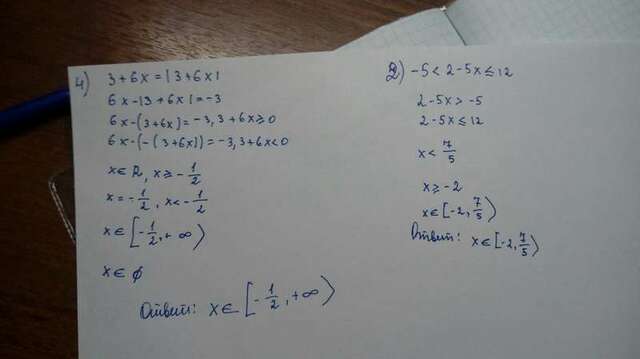 4) 3+6x=|3+6x|
6x-|3+6x|=-3
6x-(3+6x)=-3, 3+6x≥0
6x-(-(3+6x))=-3, 3+6x<0
x∈R, x≥-1/2
x=-1/2, x<-1/2
x∈[-1/2,+∞)
x∈∅
Ответ: x∈[-1/2,+∞)
2) -5<2-5x≤12
2-5x>-5
2-5x≤12
x<7/5
x≥-2
x∈[-2,7/5)
Ответ: x∈[-2,7/5)